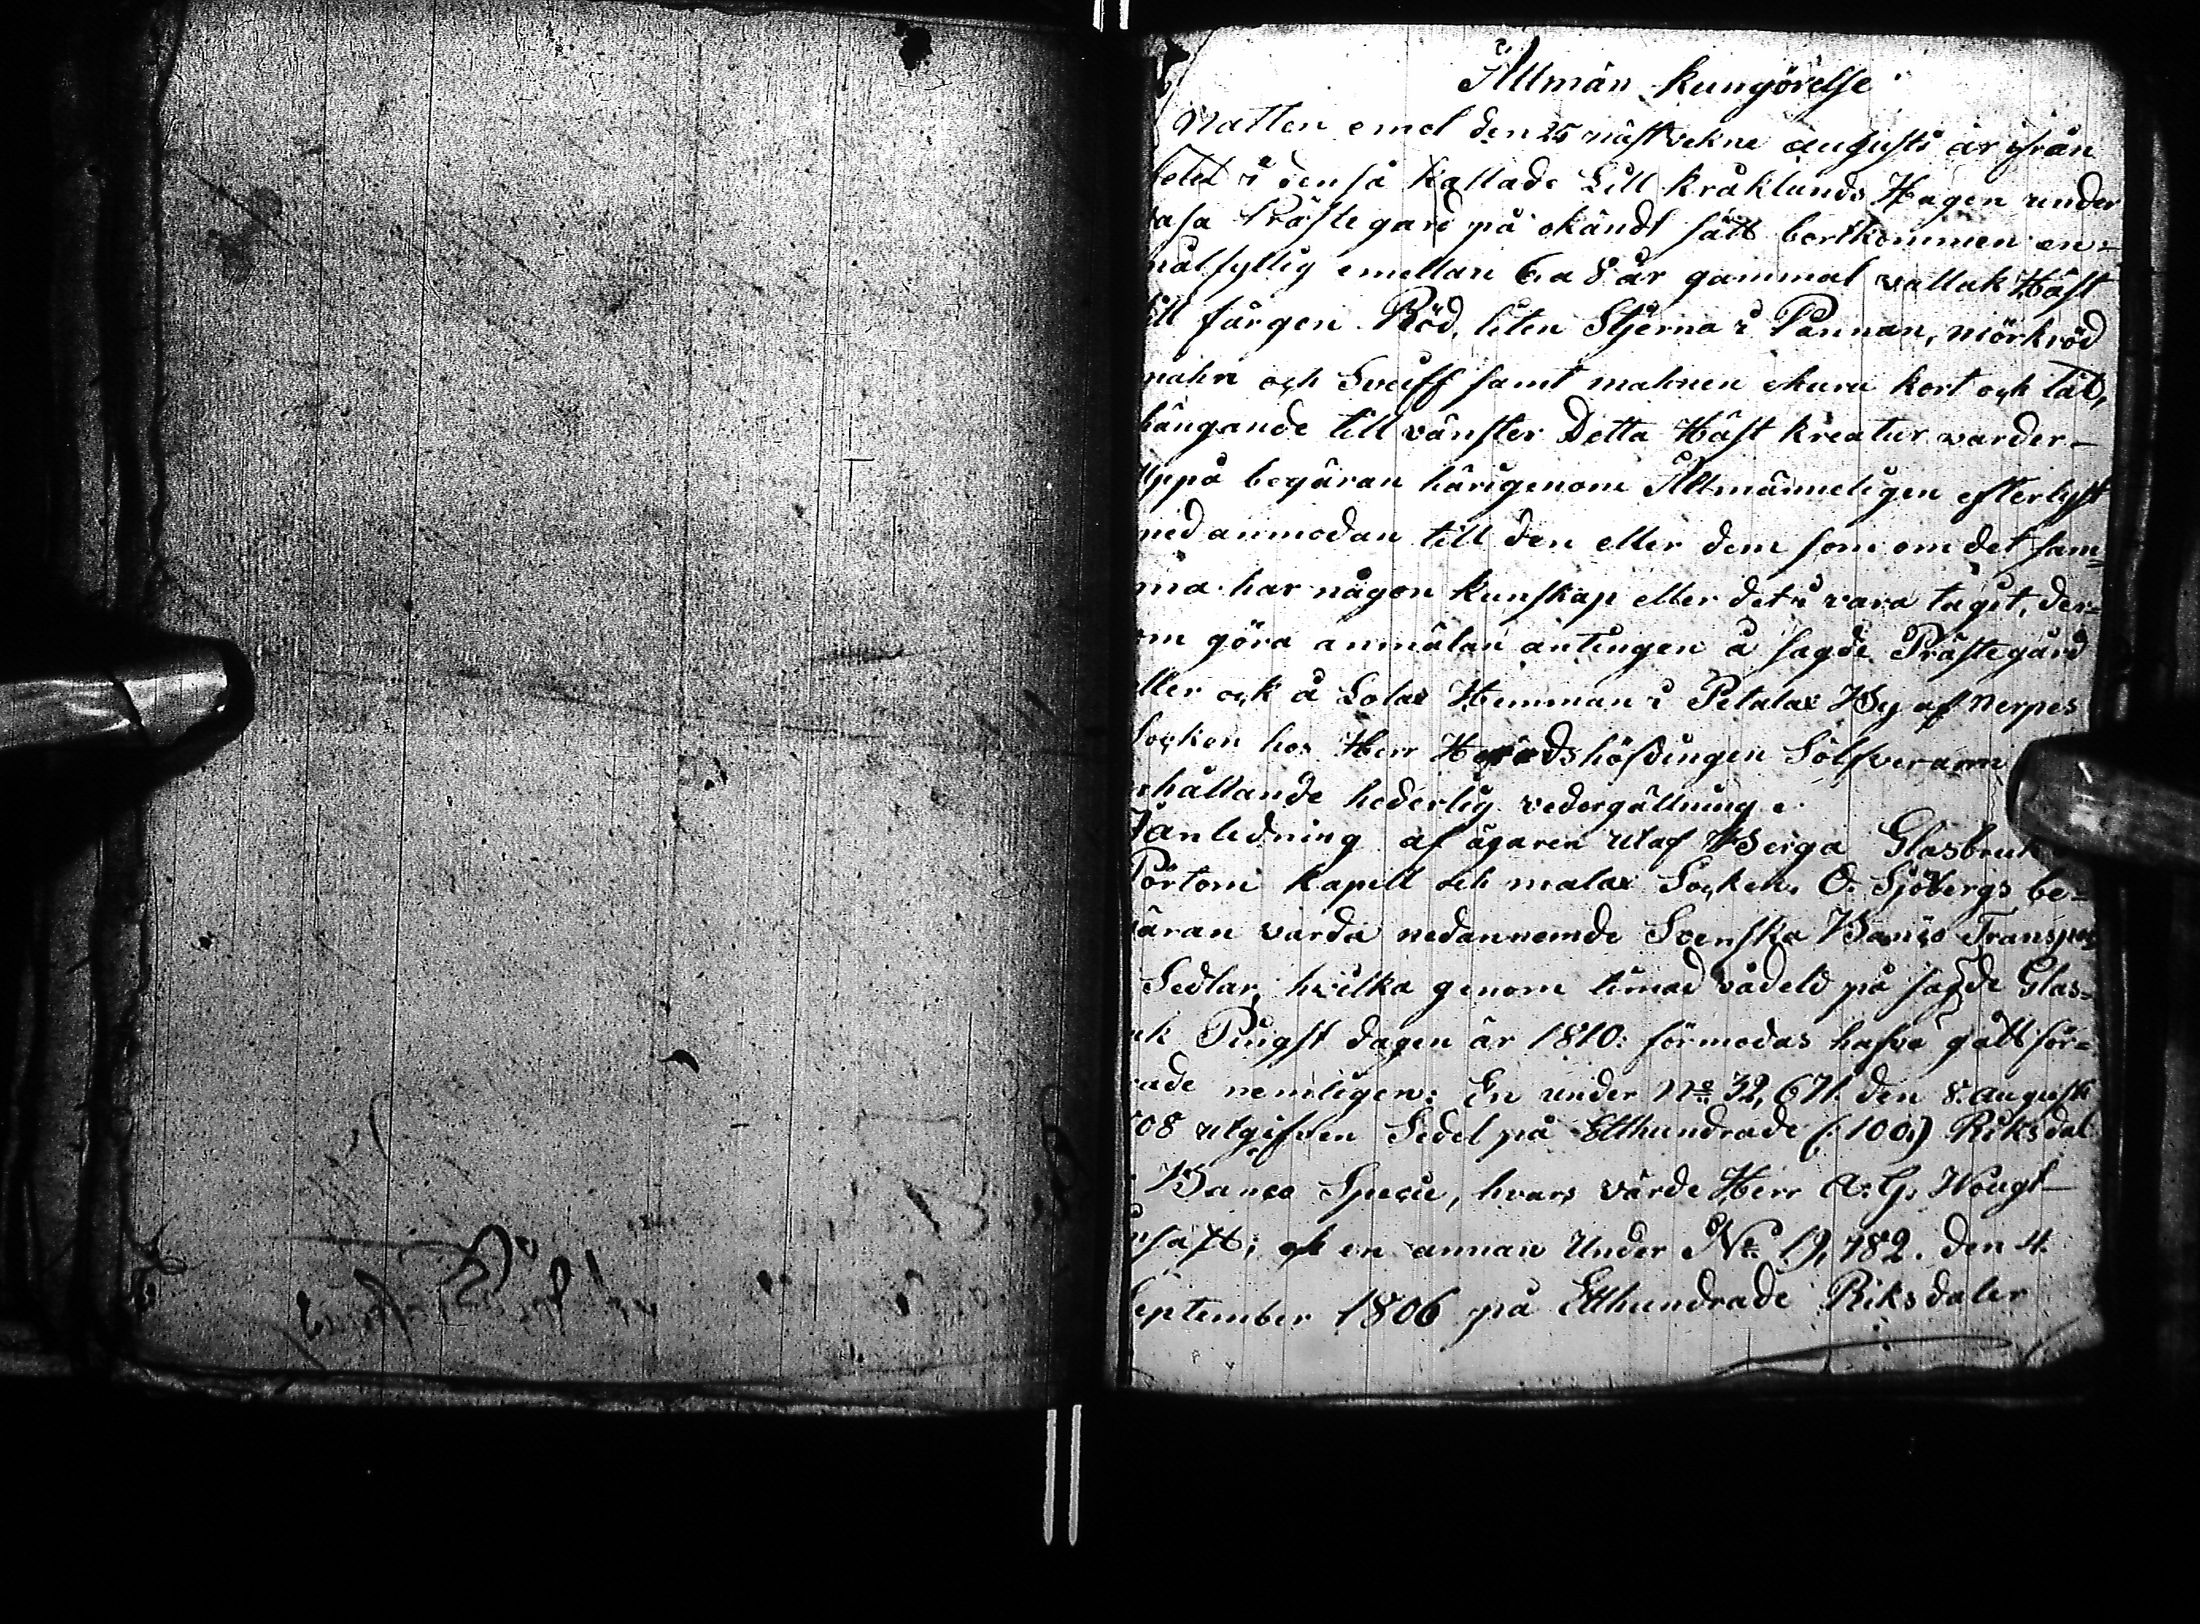 Allmän kungörelse
Natten emel den 25 nästvekne augusti är ifrån
betet i den så kallade Lill kråklunds Hagen under
vasa Prästegård på okändt sätt bortkommen en
målfyllig emellan 6 a 8 år gammal vallak Häst
till färgen Röd, liten Stjerna i Pannan, mörkröd
mahn och Svuff samt mahnen skuru kort och tät,
hängande till vänster Detta Häst kreatur varder
Uppå begäran härigenom Allmänneligen efterlyst
med anmodan till den eller dem som om det sam=
ma har någon kunskap eller det vara taget, der=
om göra anmälan äntingen å sagde Prästegård
eller ock å Lolax Hemman i Petalax By af Nerpes
Socken hos Herr Häradshöfdingen Sölfverarm
erhållande hederlig vedergällning.
I anledning af ägaren utaf Berga Glasbruk
Pörtom kapell och malax Socken O. Sjöbergs be=
gäran varda nedannemde Svenska Banco Transport
Sedlar, hvilka genom timad vådeld på sagde Glas=
uk Pingst dagen år 1810: förmodas hafva gått för=
rade nemligen: En under No 32,671. den 8. augusti
808 utgifven Sedel på Etthundrade (:100:) Riksdal
Banco Specie, hvars värde Herr A. G. Wougt
ersatt; och en annan Under No 19,782. den 4.
September 1806 på Etthundrade Riksdaler